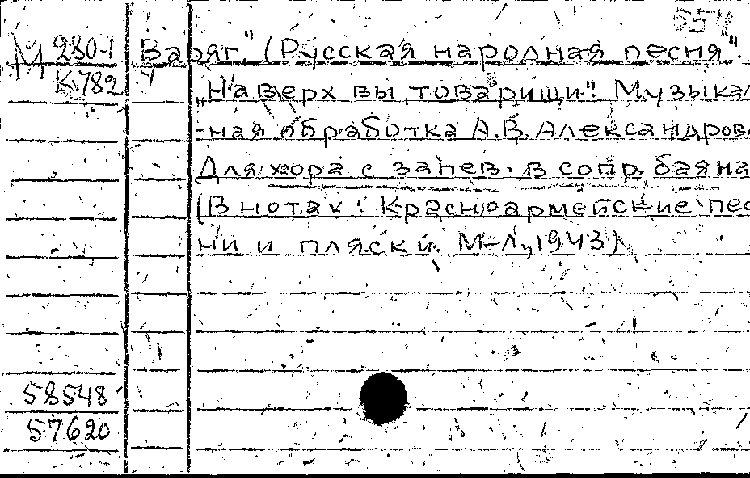 657
М 280-1 Варяг." (Русская народная песня".
К 782 "Наверх вы товарищи"! Музыкаль
-ная обработка А.В. Александрова
Для хора с запев. в сопр. баяна
(В нотах: Красноармейские пес
ни и пляски. М-Л, 1943)
58548
57620